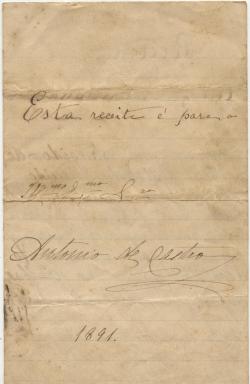 Esta receita é para o
Illmo Exmo Snr
Antonio de Castro
1891.